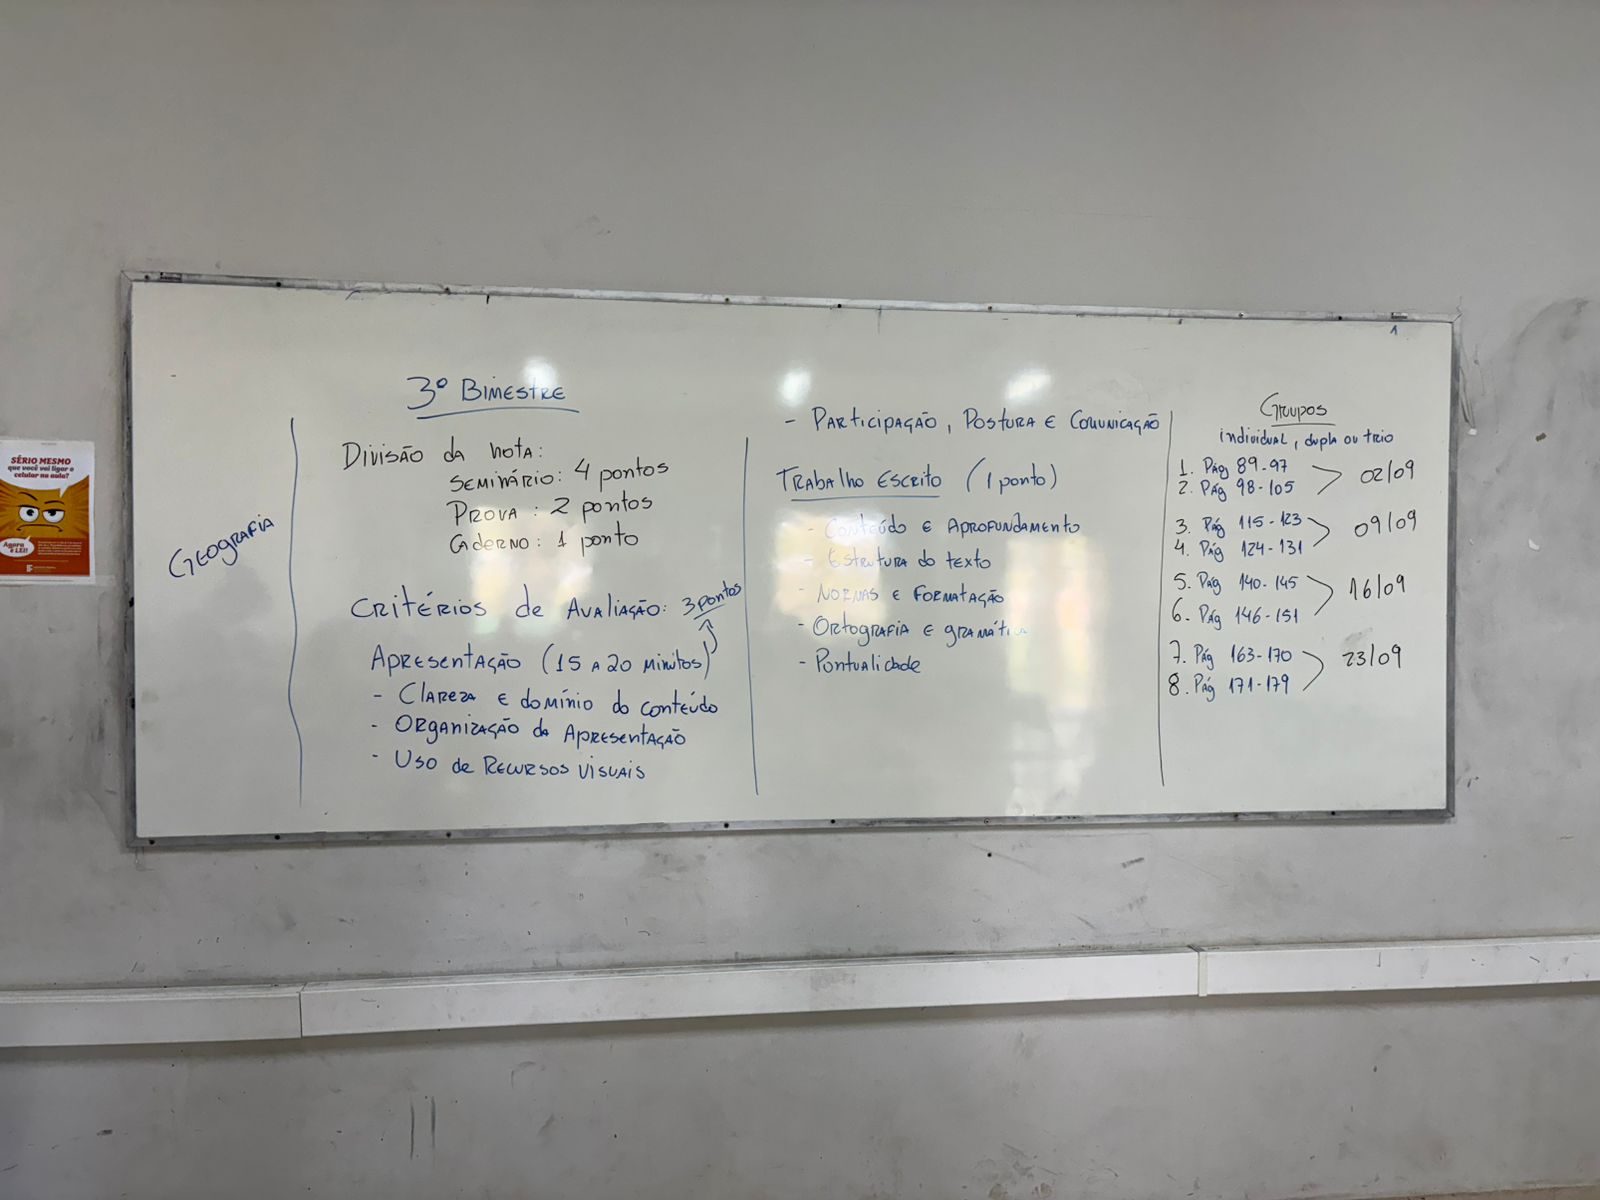 SÉRIO MESMO
que você vai ligar o
celular na aula?
Agora
é LEI!
GEOGRAFIA
3º BIMESTRE
Divisão da nota:
SEMINÁRIO: 4 pontos
PROVA: 2 pontos
CADERNO: 1 ponto
CRITÉRIOS de AVALIAÇÃO: 3 pontos
APRESENTAÇÃO (15 A 20 MINUTOS)
- CLAREZA E domínio do conteúdo
- ORGANIZAÇÃO DA APRESENTAÇÃO
- USO de RECURSOS VISUAIS
- PARTICIPAÇÃO, POSTURA E COMUNICAÇÃO
TRABALHO ESCRITO (1 ponto)
- Conteúdo E APROFUNDAMENTO
- ESTRUTURA DO TEXTO
- NORMAS E FORMATAÇÃO
- ORTOGRAFIA E GRAMÁTICA
- PONTUALIDADE
Grupos
individual, dupla ou trio
1. Pág 89-97
2. Pág 98-105
02/09
3. Pág 115-123
4. Pág 124-131
09/09
5. Pág 140-145
6. Pág 146-151
16/09
7. Pág 163-170
8. Pág 171-179
23/09